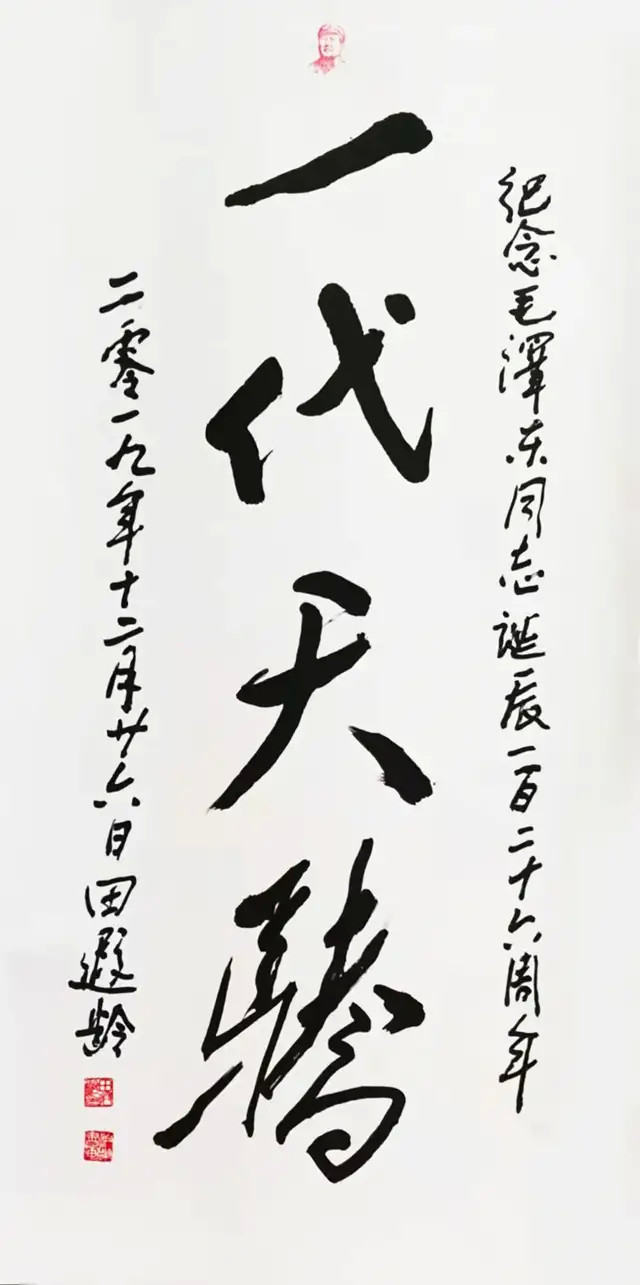 纪念毛澤东同志诞辰一百二十六周年
一代天驕
二零一九年十二月廿六日田遐龄